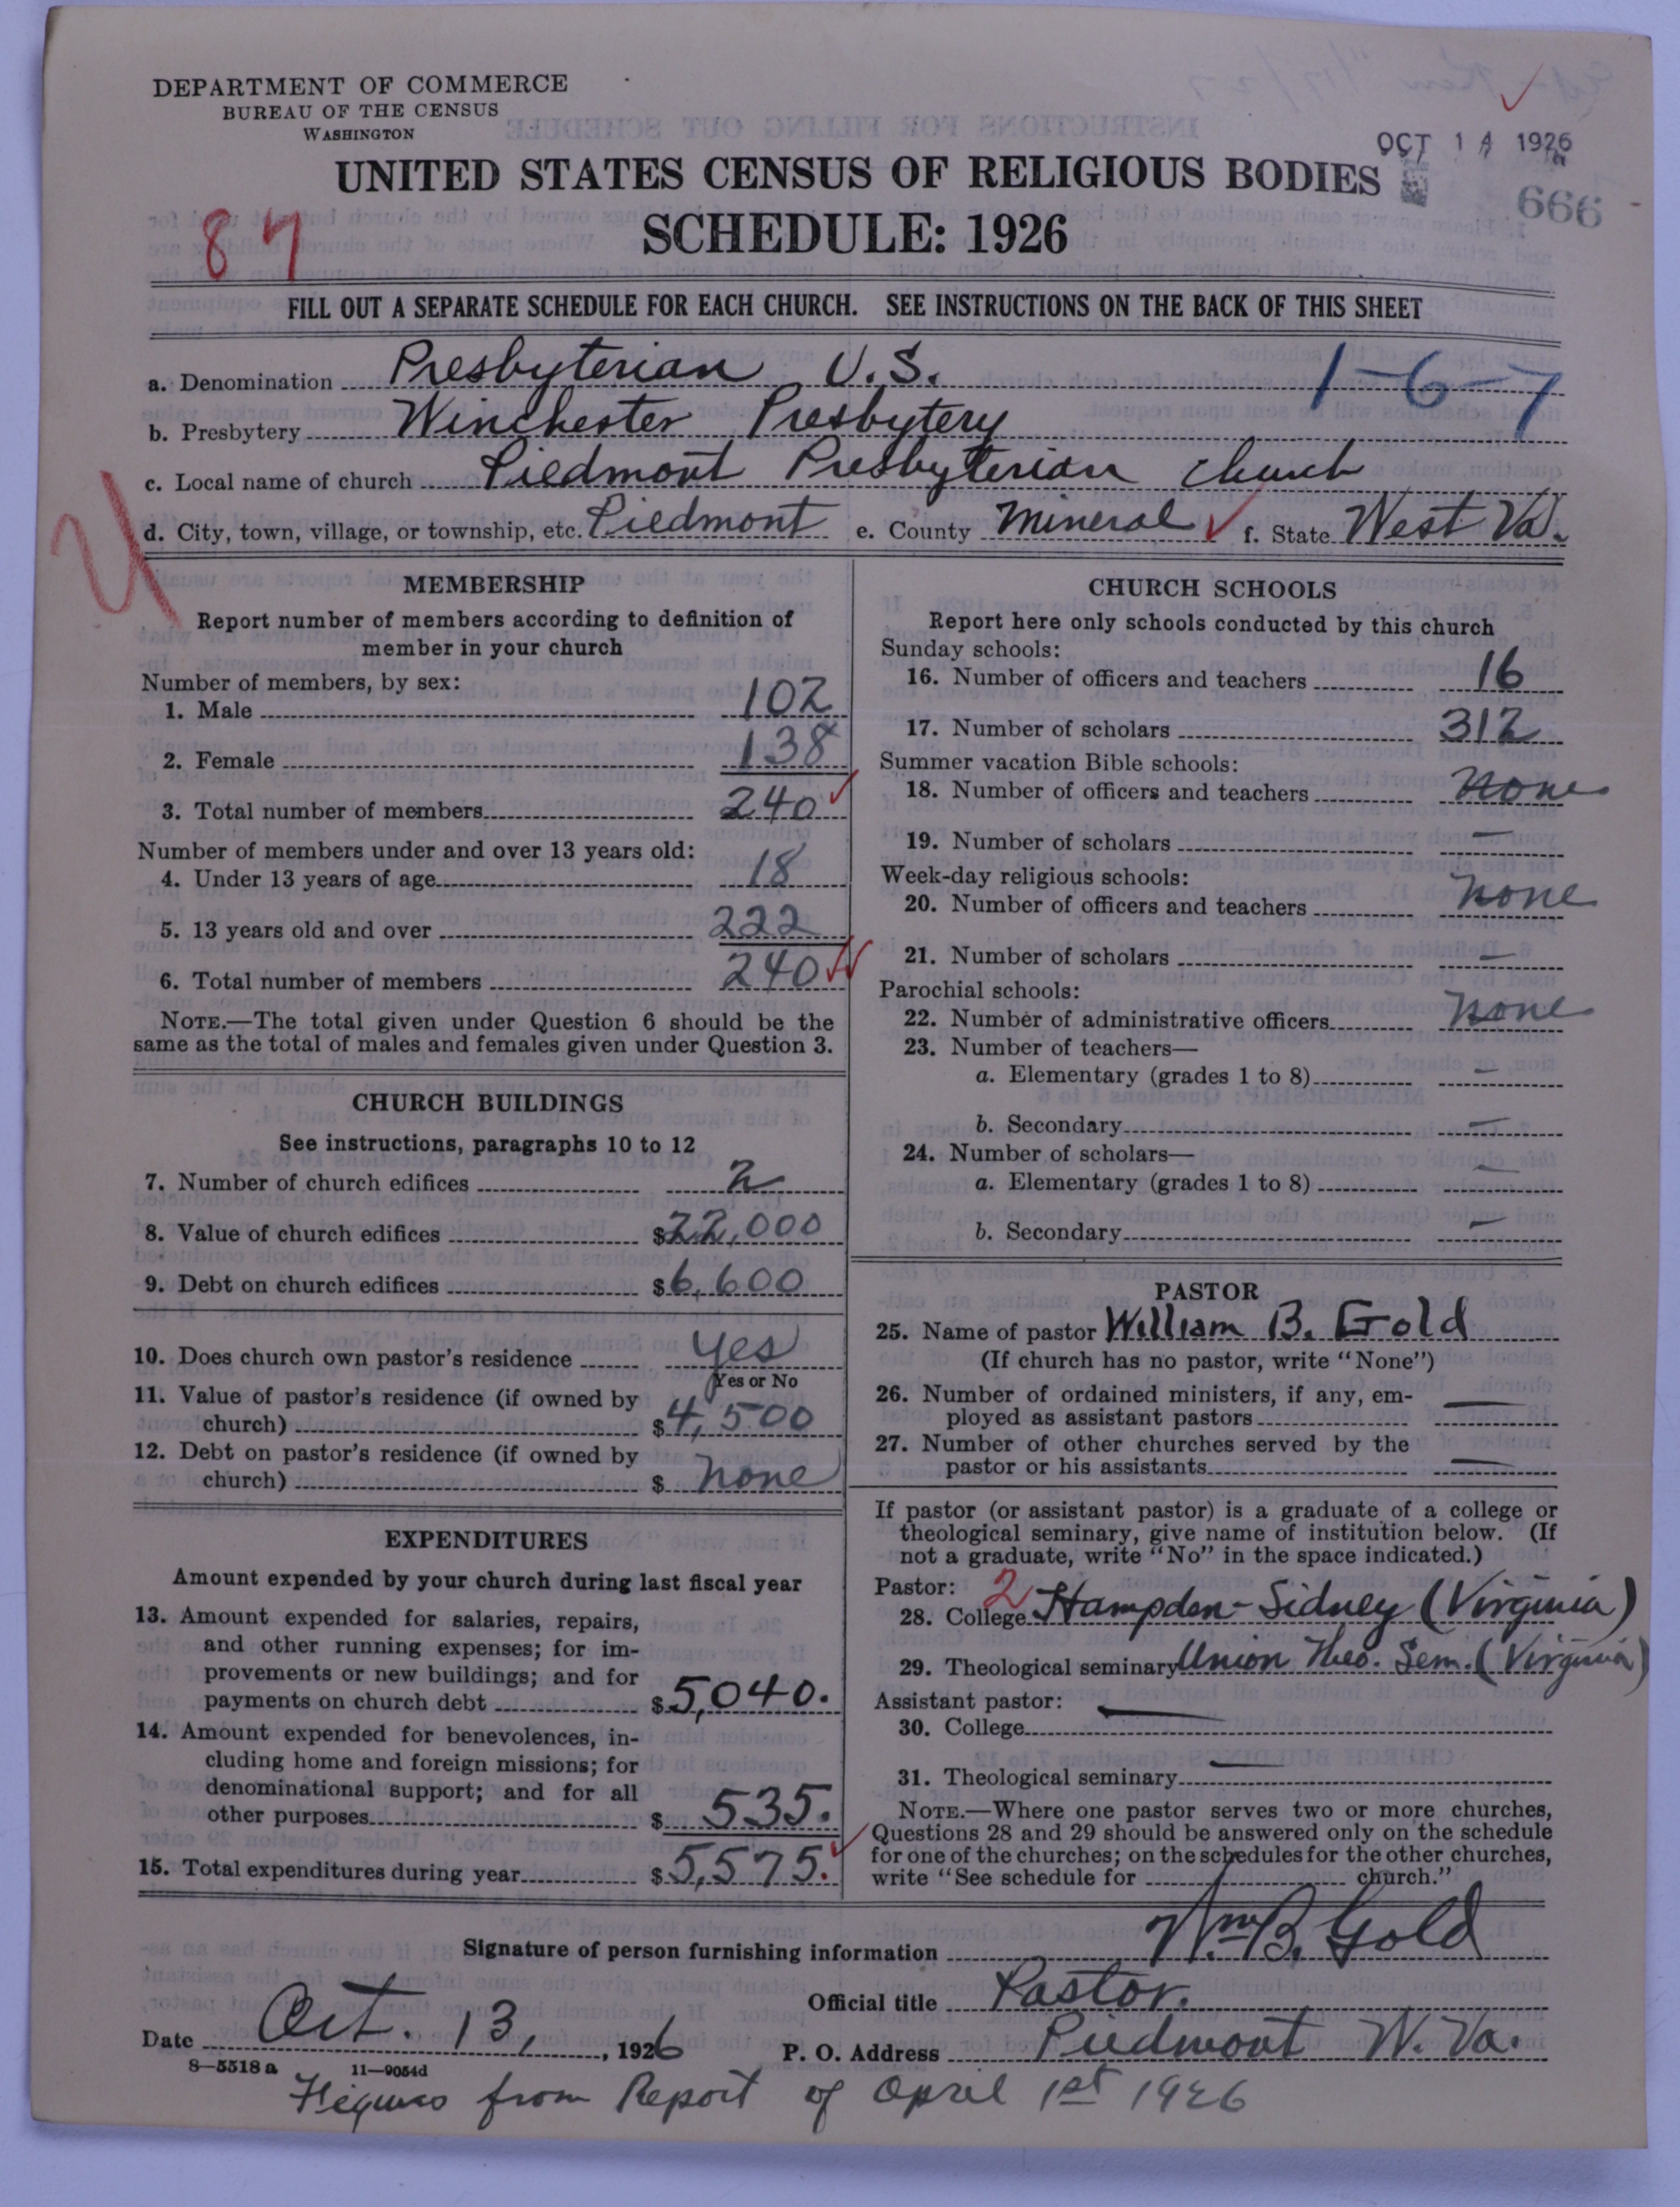 DEPARTMENT OF COMMERCE
BUREAU OF THE CENSUS
WASHINGTON
OCT 14 1926
UNITED STATES CENSUS OF RELIGIOUS BODIES
666
87
SCHEDULE: 1926
FILL OUT A SEPARATE SCHEDULE FOR EACH CHURCH. SEE INSTRUCTIONS ON THE BACK OF THIS SHEET
a. Denomination Presbyterian U.S. 1-6-7
b. Presbytery Winchester Presbytery
c. Local name of church Piedmont Presbyterian Church
d. City, town, village, or township, etc. Piedmont e. County Mineral f. State West Va.
MEMBERSHIP
Report number of members according to definition of
member in your church
Number of members, by sex:
1. Male 102
2. Female 138
3. Total number of members 240
Number of members under and over 13 years old:
4. Under 13 years of age 18
5. 13 years old and over 222
6. Total number of members 240
NOTE.—The total given under Question 6 should be the
same as the total of males and females given under Question 3.
CHURCH BUILDINGS
See instructions, paragraphs 10 to 12
7. Number of church edifices 2
8. Value of church edifices $22,000
9. Debt on church edifices $6,600
10. Does church own pastor's residence yes
Yes or No
11. Value of pastor's residence (if owned by
church) $4,500
12. Debt on pastor's residence (if owned by
church) $ none
EXPENDITURES
Amount expended by your church during last fiscal year
13. Amount expended for salaries, repairs,
and other running expenses; for im-
provements or new buildings; and for
payments on church debt $5,040.
14. Amount expended for benevolences, in-
cluding home and foreign missions; for
denominational support; and for all
other purposes $ 535.
15. Total expenditures during year $5,575.
CHURCH SCHOOLS
Report here only schools conducted by this church
Sunday schools:
16. Number of officers and teachers 16
17. Number of scholars 312
Summer vacation Bible schools:
18. Number of officers and teachers none
19. Number of scholars —
Week-day religious schools:
20. Number of officers and teachers none
21. Number of scholars —
Parochial schools:
22. Number of administrative officers none
23. Number of teachers—
a. Elementary (grades 1 to 8) —
b. Secondary —
24. Number of scholars—
a. Elementary (grades 1 to 8) —
b. Secondary —
PASTOR
25. Name of pastor William B. Gold
(If church has no pastor, write "None")
26. Number of ordained ministers, if any, em-
ployed as assistant pastors —
27. Number of other churches served by the
pastor or his assistants —
If pastor (or assistant pastor) is a graduate of a college or
theological seminary, give name of institution below. (If
not a graduate, write "No" in the space indicated.)
Pastor: 2
28. College Hampden-Sidney (Virginia)
29. Theological seminary Union Theo. Sem. (Virginia)
Assistant pastor:
30. College —
31. Theological seminary —
NOTE.—Where one pastor serves two or more churches,
Questions 28 and 29 should be answered only on the schedule
for one of the churches; on the schedules for the other churches,
write "See schedule for church."
Signature of person furnishing information Wm B. Gold
Official title Pastor.
Date Oct. 13, 1926 P. O. Address Piedmont W. Va.
8—5518 a 11—9054d
Figures from Report of April 1st 1926